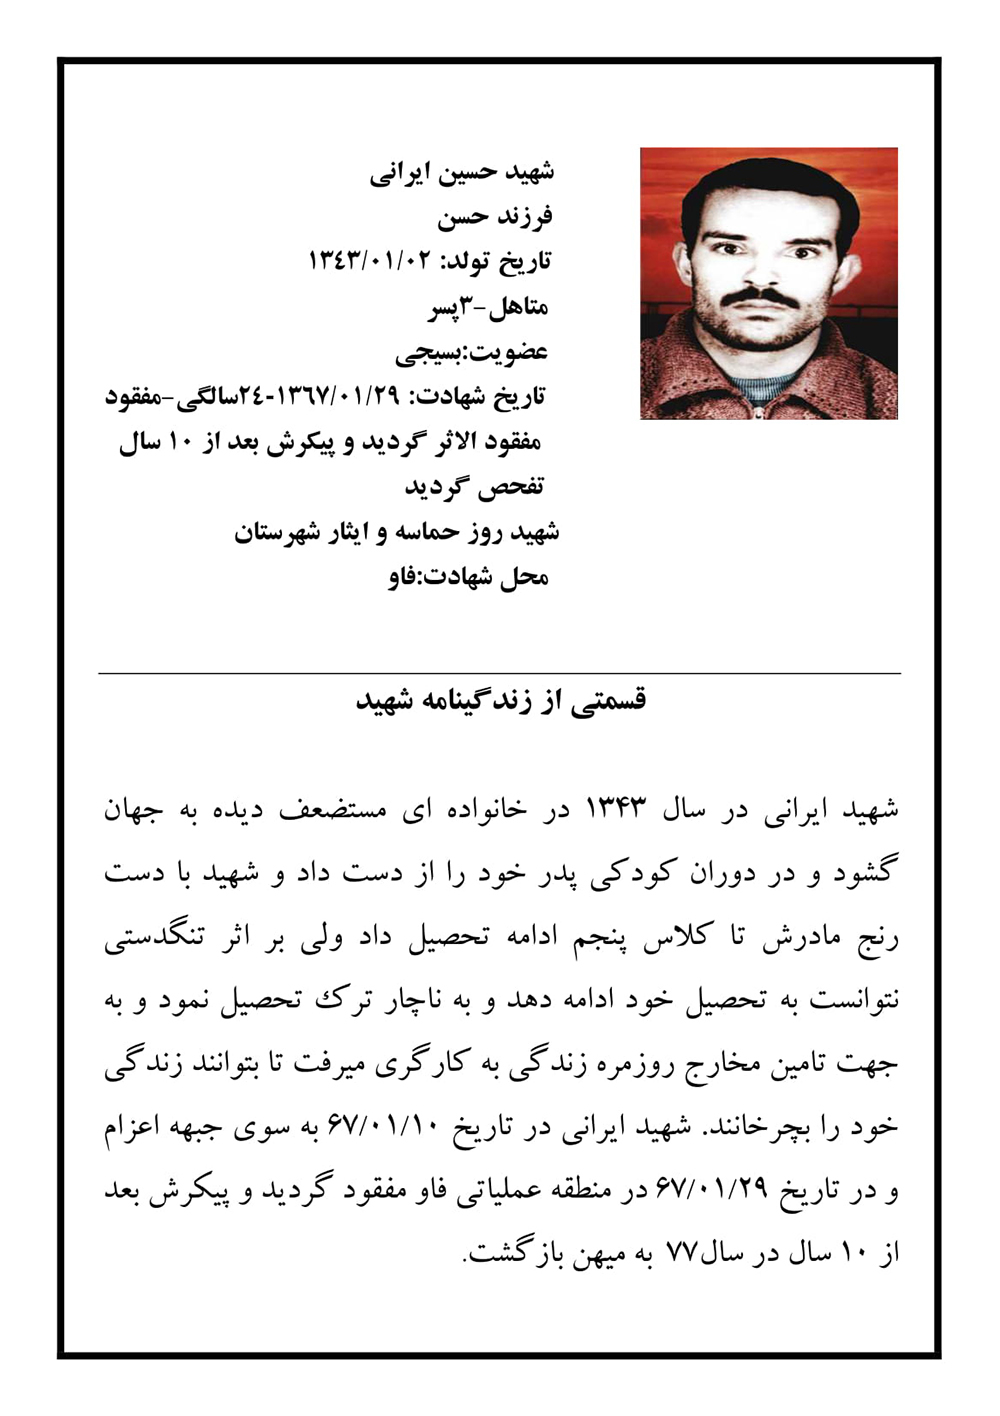 شهید حسین ایرانی
فرزند حسن
تاریخ تولد: ۱۳٤۳/۰۱/۰۲
متاهل-۳پسر
عضویت:بسیجی
تاریخ شهادت: ۱۳٦۷/۰۱/۲۹-۲٤سالگی-مفقود
مفقود الاثر گردید و پیکرش بعد از ۱۰ سال
تفحص گردید
شهید روز حماسه و ایثار شهرستان
محل شهادت:فاو
قسمتی از زندگینامه شهید
شهید ایرانی در سال ۱۳۴۳ در خانواده ای مستضعف دیده به جهان
گشود و در دوران کودکی پدر خود را از دست داد و شهید با دست
رنج مادرش تا کلاس پنجم ادامه تحصیل داد ولی بر اثر تنگدستی
نتوانست به تحصیل خود ادامه دهد و به ناچار ترک تحصیل نمود و به
جهت تامین مخارج روزمره زندگی به کارگری میرفت تا بتوانند زندگی
خود را بچرخانند. شهید ایرانی در تاریخ ۶۷/۰۱/۱۰ به سوی جبهه اعزام
و در تاریخ ۶۷/۰۱/۲۹ در منطقه عملیاتی فاو مفقود گردید و پیکرش بعد
از ۱۰ سال در سال۷۷ به میهن بازگشت.